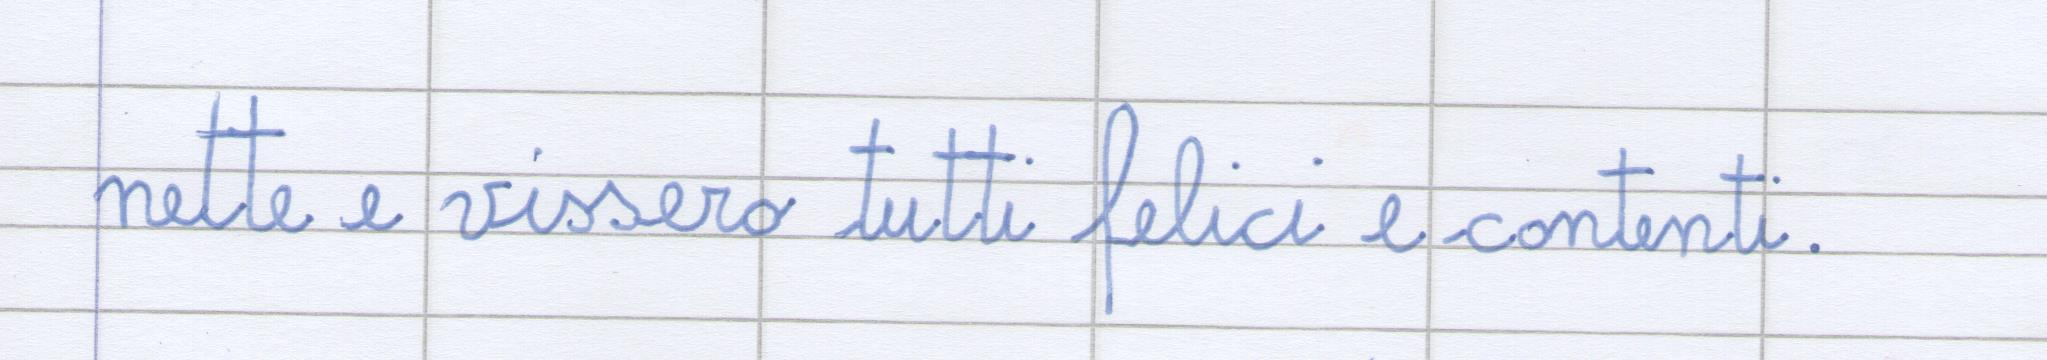 nette e vissero tutti felici e contenti.